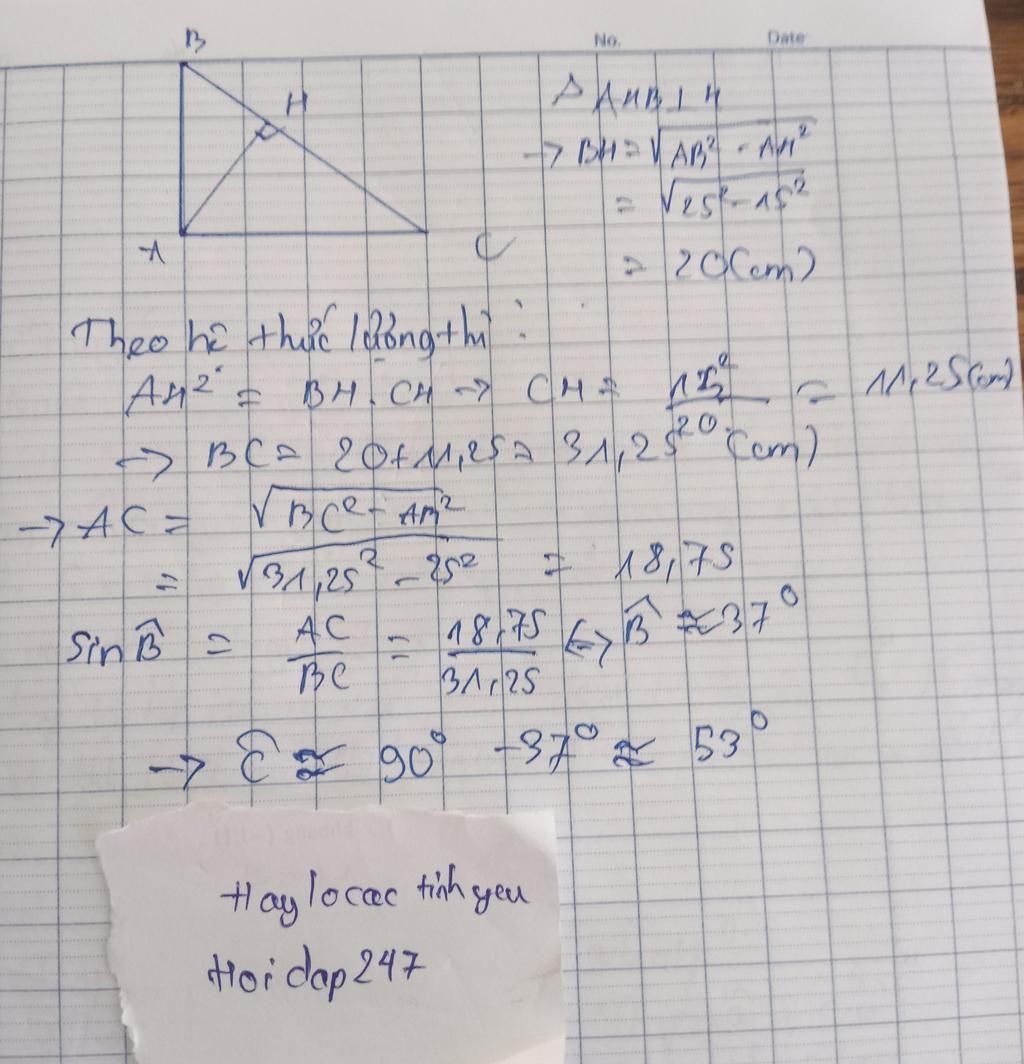 No.
Date
B
H
A
C
Δ AHB ⊥ H
→ BH = √AB² - AH²
= √25² - 15²
= 20(cm)
Theo hê thức lượng thì :
AH² = BH . CH → CH = 15²/20 = 11,25(cm)
→ BC = 20+11,25 = 31,25 (cm)
→ AC = √BC² - AB²
= √31,25² - 25² = 18,75
Sin B̂ = AC/BC = 18,75/31,25 ↔ B̂ ≈ 37°
→ Ĉ ≈ 90° - 37° ≈ 53°
Hay lo cac tinh yeu
Hoi dap 247